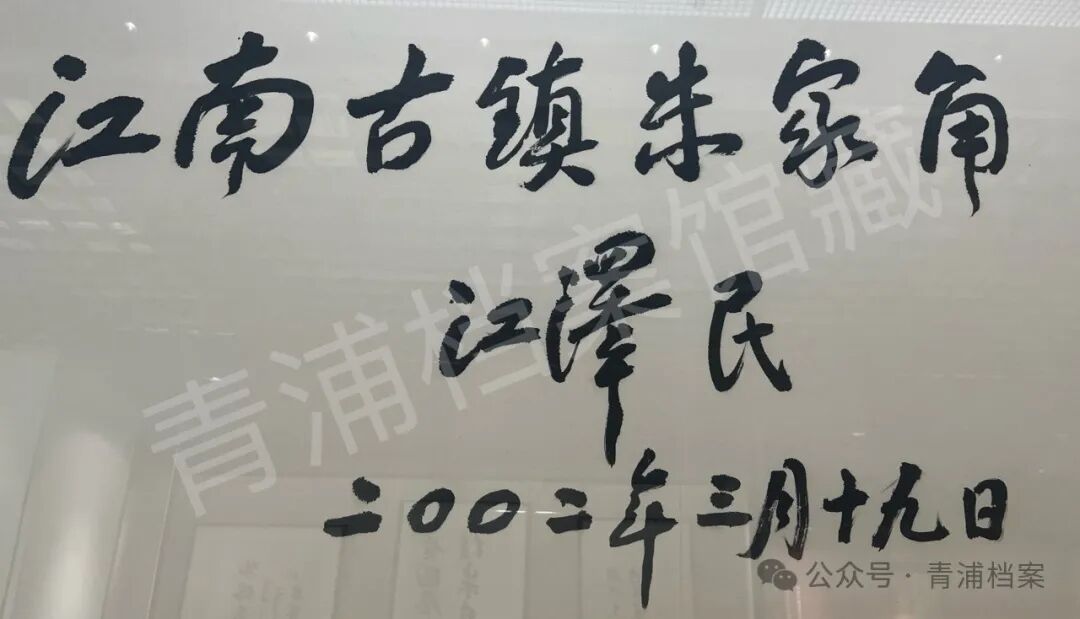 江南古镇朱家角
江澤民
二〇〇二年三月十九日
青浦档案馆藏
公众号·青浦档案